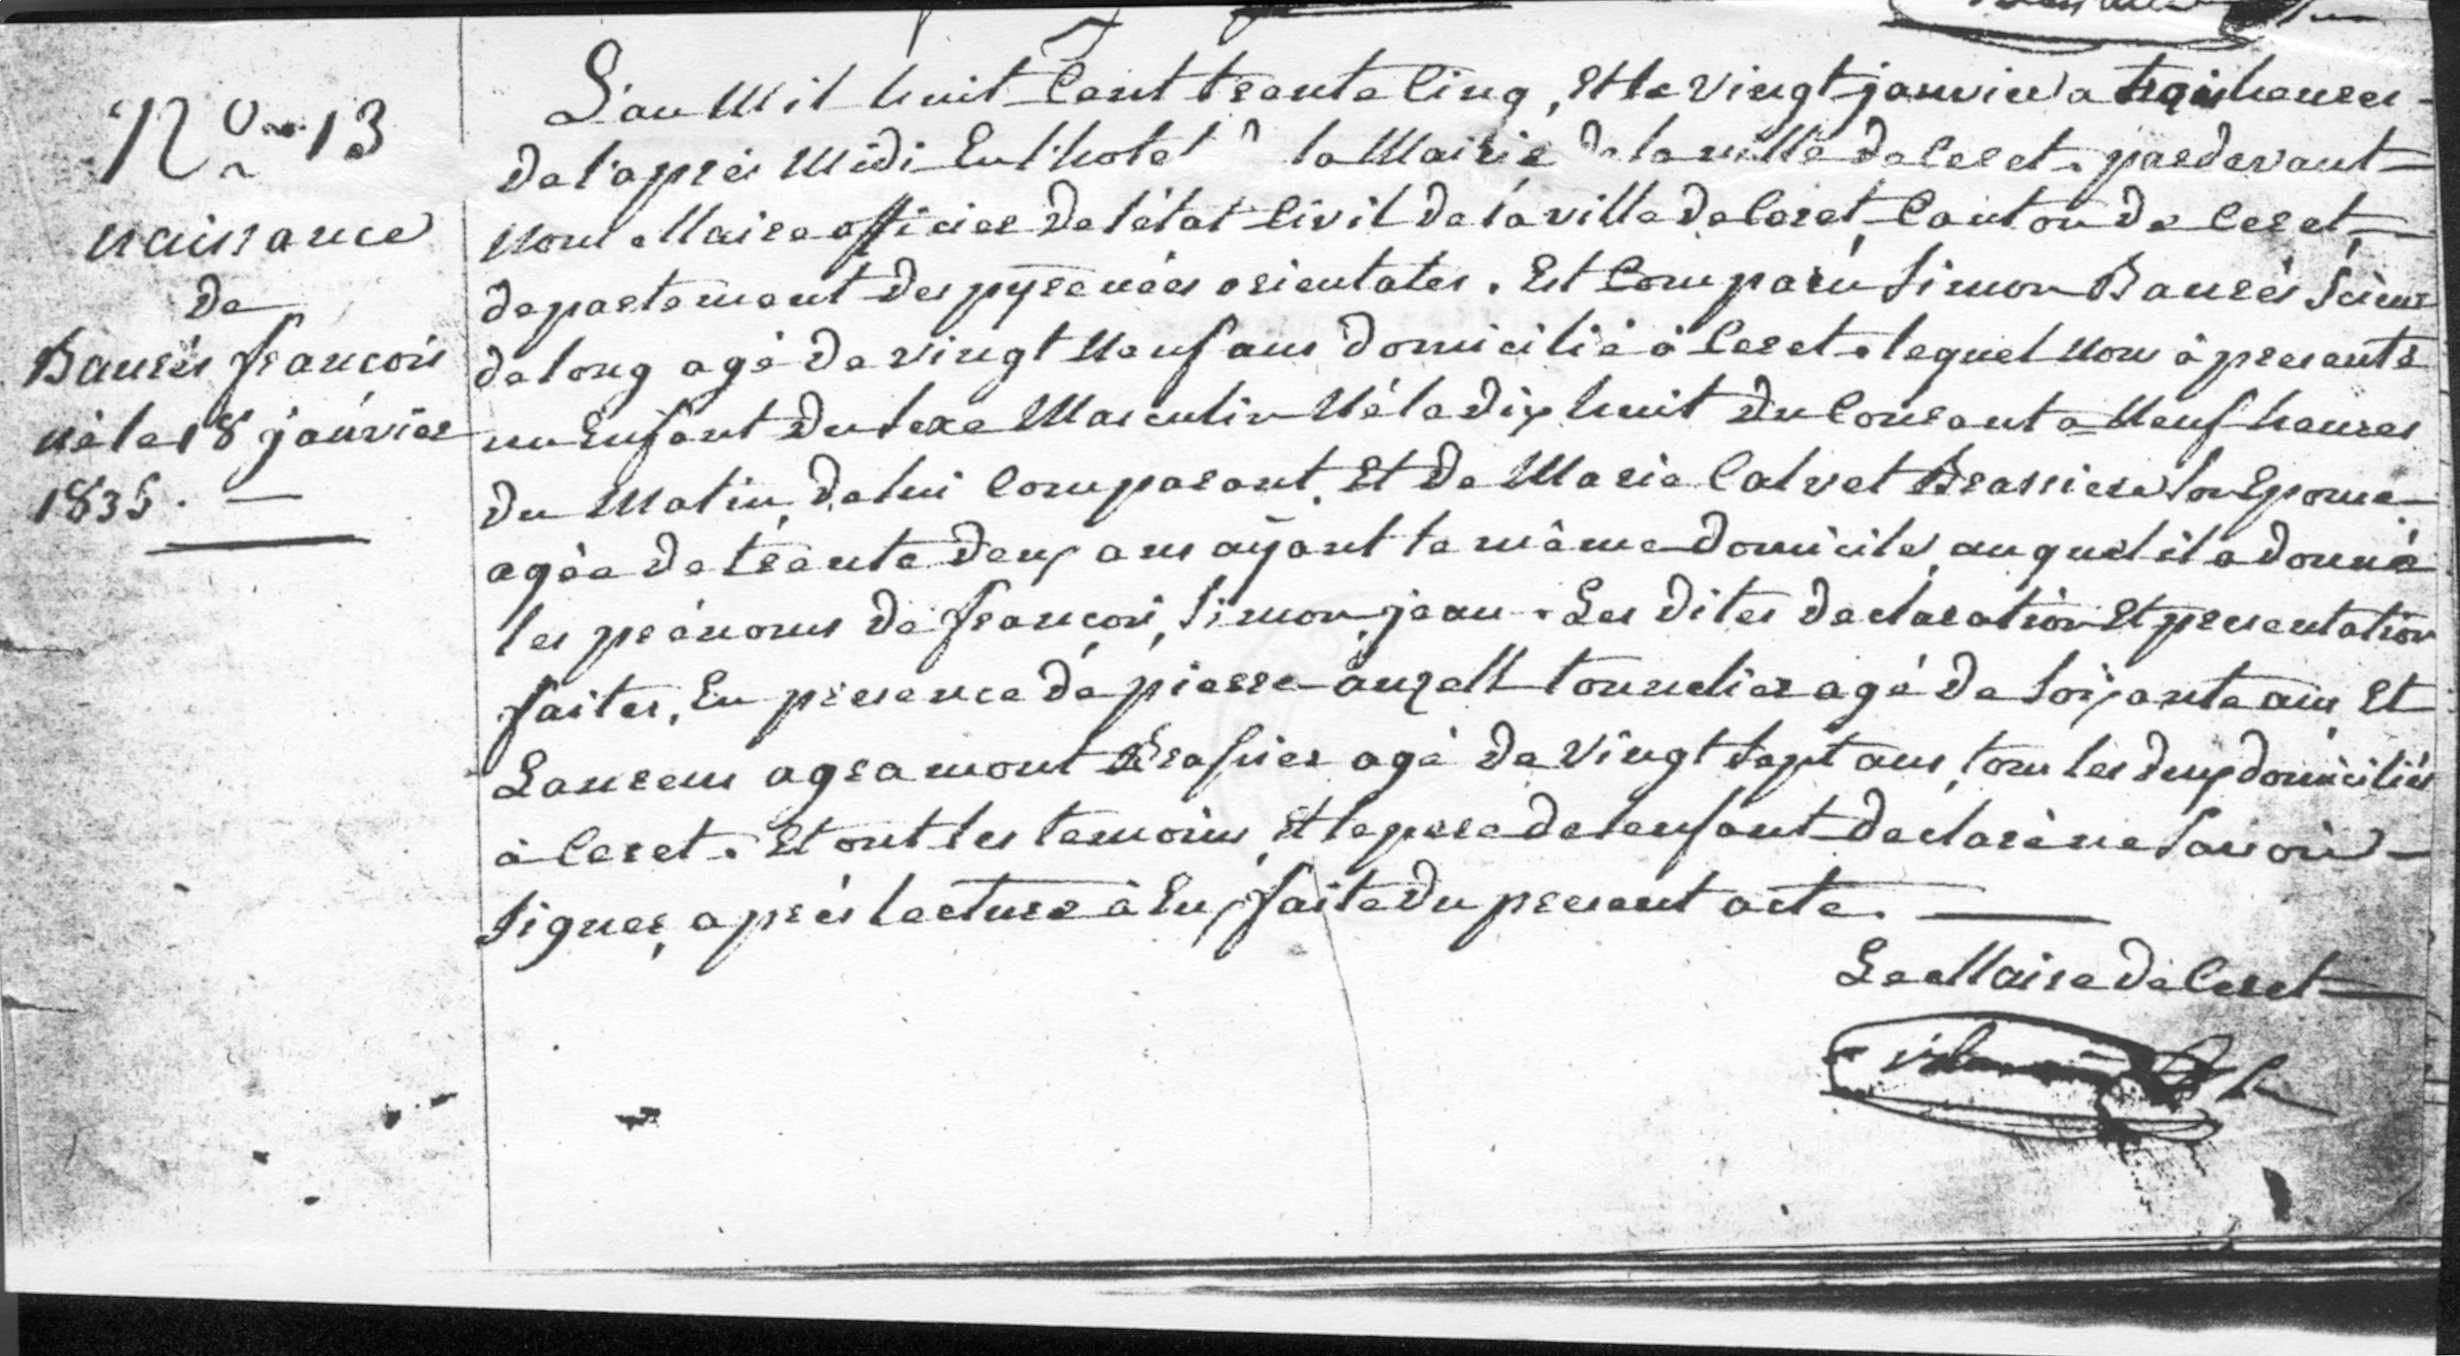 N.º 13
naissance
de
Baurés françois
né le 18 janvier
1835. —
L'an Mil huit Cent trente Cinq, Et le vingt janvier a trois heures
de l'aprés Midi En l'hotel de la Mairie de la ville de Ceret, pardevant
Nous Maire officier de l'état Civil de la ville de Ceret, Canton de Ceret,
departement des pyrenées orientales. Est Comparu Simon Baurés Scieur
de long agé de vingt Neuf ans domicilié à Ceret, lequel Nous à presenté
un Enfant du Sexe Masculin Né le dix huit du Courant a Neuf heures
du Matin, de lui Comparant, Et de Marie Calvet Brassiere Son Epouse
agée de trente deux ans ayant le même domicile, auquel il a donné
les prénoms de françois, Simon, jean. Les dites declaration Et presentation
faites, En presence de pierre tonnelier agé de Soixante ans, Et
Laurens agramont agé de vingt Sept ans, tous les deux domiciliés
à Ceret. Et ont les temoins, Et le pere de lenfant declaré ne Savoir
Signer, aprés lecture à Eux faite du present acte.
Le Maire de Ceret